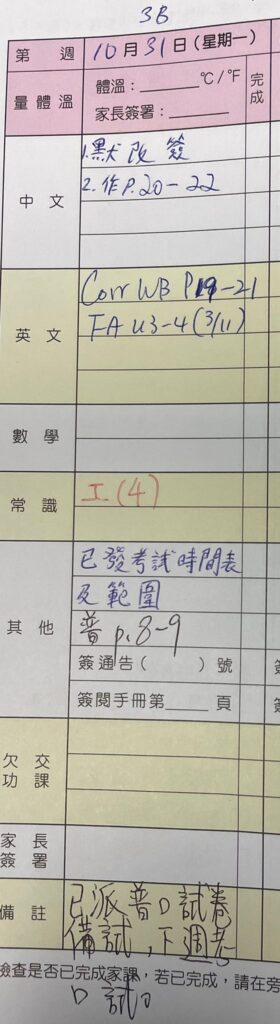 3B
第 週 10月31日(星期一)
量體溫 體溫:______°C/°F 完成
家長簽署:______
中文 1.默改簽
2.作P.20-22
英文 Corr WB P19-21
FA U3-4 (3/11)
數學
常識 工.(4)
其他 已發考試時間表
及範圍
普p.8-9
簽通告( )號
簽閱手冊第____頁
欠交功課
家長簽署
備註 已派普口試卷
備試,下週考
檢查是否已完成家課,若已完成,請在旁
口試。